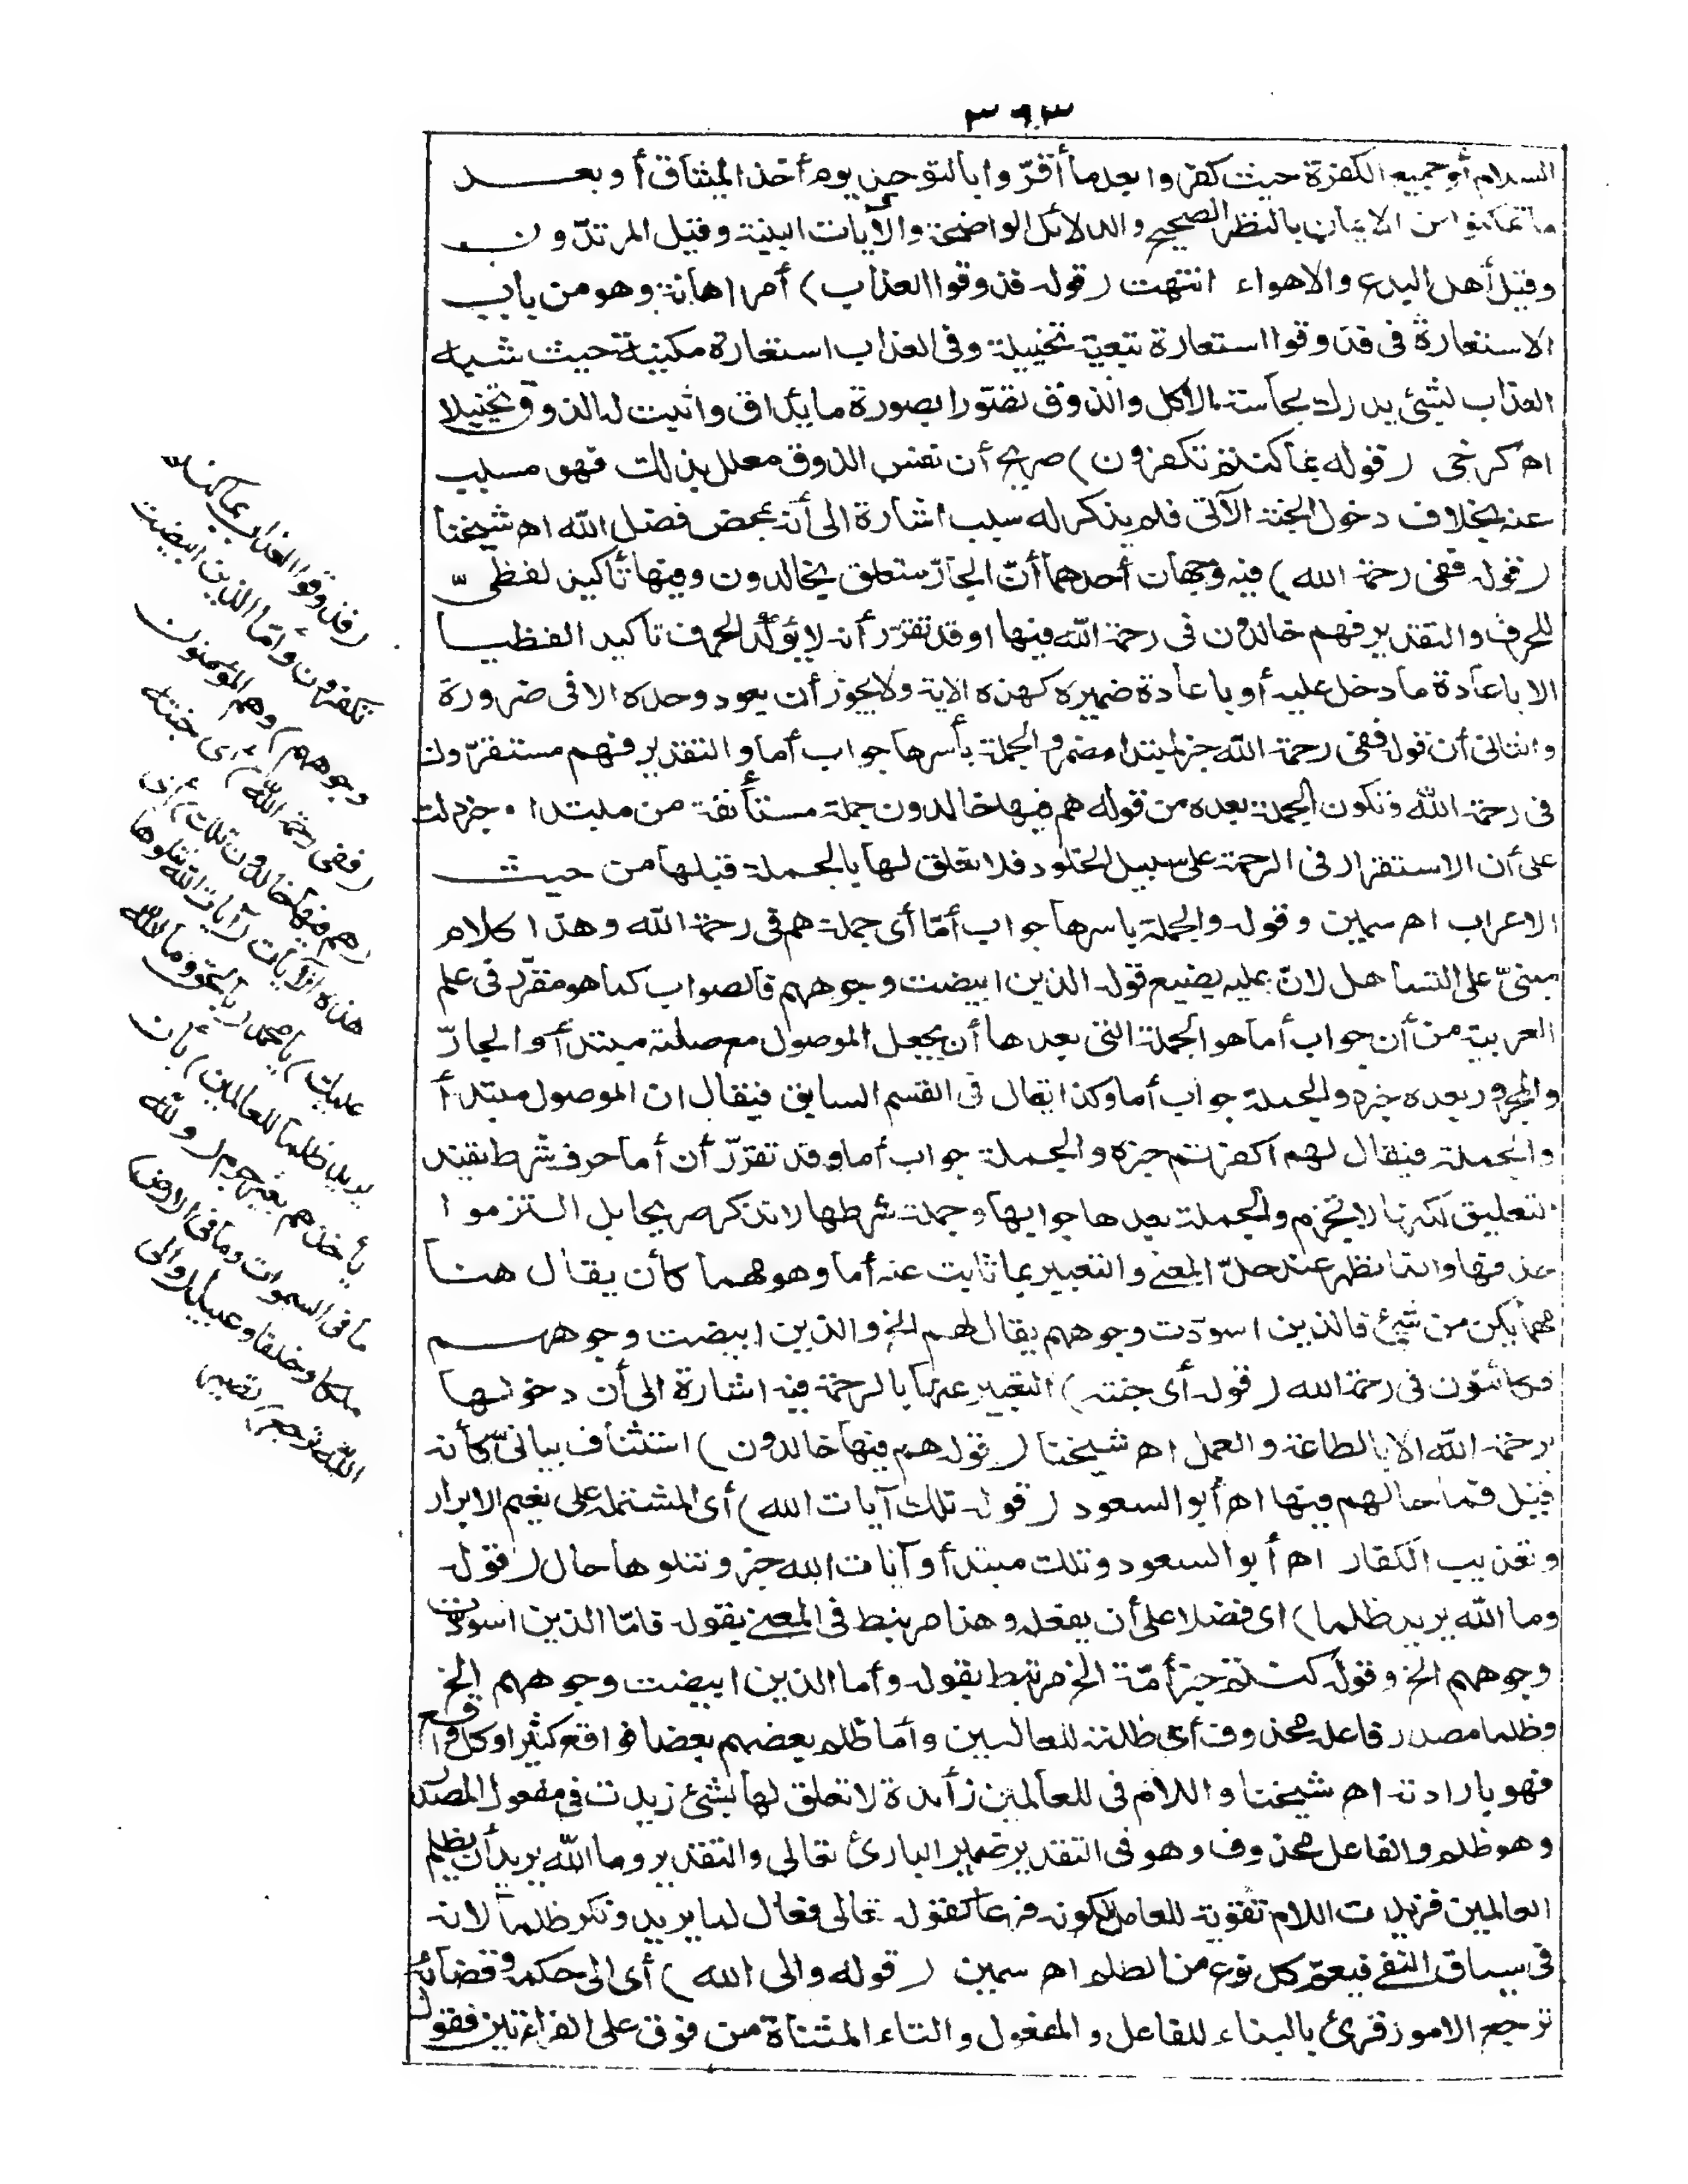 ٣٩٣
السلام أو جميع الكفرة حيث كفروا بعد ما أقرّوا بالتوحيد يوم أخذ الميثاق أو بعد
ما تمكنوا من الايمان بالنظر الصحيح والدلائل الواضحة والآيات البينة وقيل المرتدّون
وقيل أهل البدع والاهواء انتهت (قوله فذوقوا العذاب) أمر اهانة وهو من باب
الاستعارة فى فذوقوا استعارة تبعية تخييلية وفى العذاب استعارة مكنية حيث شبه
العذاب بشئ يدرك بحاسة الاكل والذوق تصوّرا بصورة ما يذاق واثبت له الذوق تخييلا
اه كرخى (قوله بما كنتم تكفرون) صريح أن نفس الذوق معلل بذلك فهو مسبب
عنه بخلاف دخول الجنة الآتى فلم يذكر له سبب اشارة الى أنه بمحض فضل الله اه شيخنا
(قوله ففى رحمة الله) فيه وجهان أحدهما أنّ الجارّ متعلق بخالدون وفيها تأكيد لفظىّ
للحرف والتقدير فهم خالدون فى رحمة الله فيها وقد تقرّر أنه لا يؤكّد الحرف تاكيد الفظيا
الا باعادة ما دخل عليه أو باعادة ضميره كهذه الاية ولا يجوز أن يعود وحده الا فى ضرورة
والثانى أن قوله ففى رحمة الله خبر لمبتدا مضمر والجملة بأسرها جواب أما والتقدير فهم مستقرّون
فى رحمة الله وتكون الجملة بعده من قوله هم فيها خالدون جملة مستأنفة من مبتدا وخبر دلت
على أن الاستقرار فى الرحمة على سبيل الخلود فلا تعلق لها بالجملة قبلها من حيث
الاعراب اه سمين وقوله والجملة باسرها جواب أمّا أى جملة هم فى رحمة الله وهذا كلام
مبنىّ على التساهل لانّ عليه يضيع قوله الذين ابيضت وجوههم فالصواب كما هو مقرّر فى علم
العربية من أن جواب أما هو الجملة التى بعدها أن يجعل الموصول مع صلته مبتدأ والجارّ
والمجرور بعده خبره والجملة جواب أما وكذا يقال فى القسم السابق فيقال ان الموصول مبتدأ
والجملة فيقال لهم اكفرتم خبره والجملة جواب أما وقد تقرّر أن أما حرف شرط يفيد
التعليق لكنها لا تجزم والجملة بعدها جوابها وجملة شرطها لا تذكر صريحا بل التزموا
حذفها وانما تظهر عند حلّ المعنى والتعبير بما نابت عنه أما وهو مهما كأن يقال هنا
مهما يكن من شئ فالذين اسودّت وجوههم يقال لهم الخ والذين ابيضت وجوههم
فكائنون فى رحمة الله (قوله أى جنته) التعبير عنها بالرحمة فيه اشارة الى أن دخولها
برحمة الله لا بالطاعة والعمل اه شيخنا (قوله هم فيها خالدون) استئناف بيانىّ كأنه
قيل فما حالهم فيها اه أبو السعود (قوله تلك آيات الله) أى المشتملة على نعيم الابرار
وتعذيب الكفار اه أبو السعود وتلك مبتدأ وآيات الله خبر ونتلوها حال (قوله
وما الله يريد ظلما) اى فضلا على أن يفعله وهذا مرتبط فى المعنى بقوله فامّا الذين اسودّت
وجوههم الخ وقوله كنتم خير أمّة الخ مرتبط بقوله وأما الذين ابيضت وجوههم الخ
وظلما مصدر فاعله محذوف أى ظلته للعالمين وأما ظلم بعضهم بعضا فواقع كثيرا وكل واقع
فهو بارادته اه شيخنا واللام فى للعالمين زائدة لا تعلق لها بشئ زيدت فى مفعول المصدر
وهو ظلم والفاعل محذوف وهو فى التقدير ضمير البارئ تعالى والتقدير وما الله يريد أن يظلم
العالمين فزيدت اللام تقوية للعامل لكونه فرعا كقوله تعالى فعال لما يريد ونكر ظلما لانه
فى سياق النفى فيعمّ كل نوع من الظلم اه سمين (قوله والى الله) أى الى حكمه وقضائه
ترجع الامور قرئ بالبناء للفاعل والمفعول والتاء المثناة من فوق على القراءتين فقول
(فذوقوا العذاب بما كنتم
تكفرون وأمّا الذين ابيضت
وجوههم) وهم المؤمنون
(ففى رحمة الله) أى جنته
(هم فيها خالدون تلك) أى
هذه الآيات (آيات الله نتلوها
عليك) يا محمد (بالحق وما الله
يريد ظلما للعالمين) بأن
يأخذهم بغير جرم (ولله
ما فى السموات وما فى الارض)
ملكا وخلقا وعبيدا (والى
الله ترجع) تصير